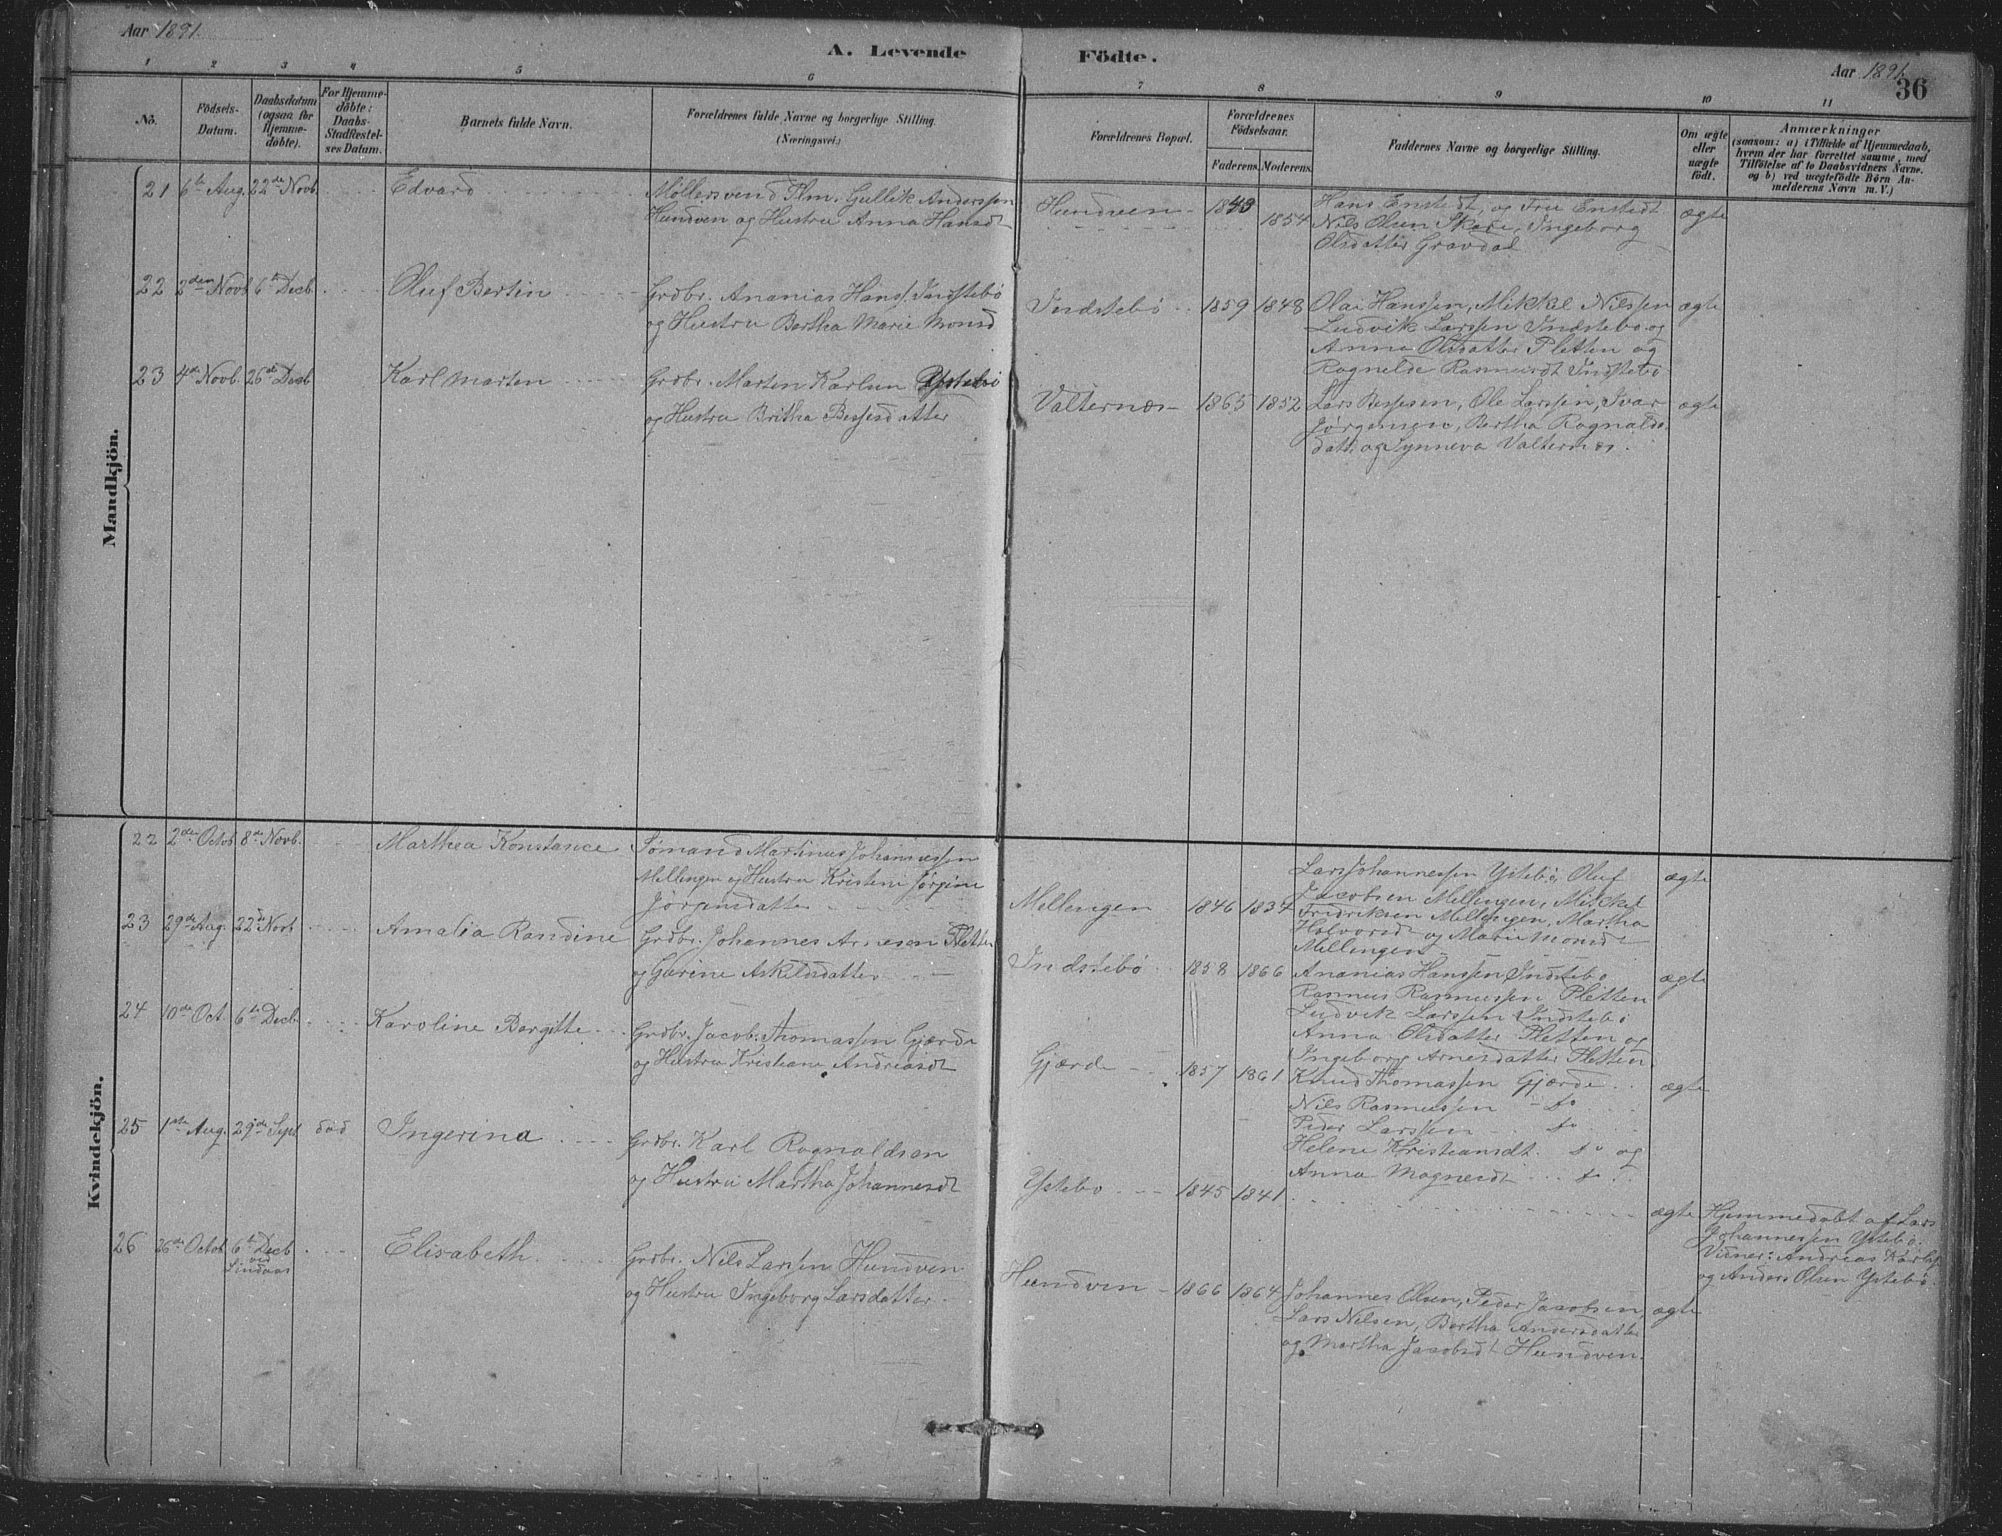 Aar 1891.
A. Levende Födte.
Aar 1891.
36
1 2 3 4 5 6 7 8 9 10 11
No.
Födsels-
Datum.
Daabsdatum
(ogsaa for
Hjemme-
döbte).
For Hjemme-
döbte:
Daabs-
Stadfæstel-
ses Datum.
Barnets fulde Navn.
Forældrenes fulde Navne og borgerlige Stilling.
(Næringsvei.)
Forældrenes Bopæl.
Forældrenes
Födselsaar.
Faderens. Moderens.
Faddernes Navne og borgerlige Stilling.
Om ægte
eller
uægte
födt.
Anmærkninger
(saasom: a) i Tilfælde af Hjemmedaab,
hvem der har forrettet samme, med
Tilföielse af to Daabsvidners Navne.
og b) ved uægtefödte Börn An-
melderens Navn m. V.)
Mandkjön.
21 6te Aug. 22de Novb. Edvard
Møllersvend Tlm. Gullik Anderssen
Hundven og Hustru Anna Hansd
Hundven 1843 1854
Hans Enstedt, og Fru Enstedt
Nils Olsen Skare, Ingeborg
Olsdatter Gravdal
ægte
22 2den Novb 6te Decb. Oluf Bertin
Grdbr. Ananias Hanss. Indstebö
og Hustru Bertha Marie Monsd
Indstebö 1859 1848
Olai Hanssen, Mikkel Nilssen
Ludvik Larssen Indstebö og
Anna Olsdatter Pletten og
Ragnelde Rasmusdt Indstebö
ægte
23 4de Novb. 26de Decb Karl Marten
Grdbr. Marten Karlsen Ystebö
og Hustru Britha Bessesdatter
Valternæs 1865 1852
Lars Bessesen, Ole Larssen, Ivar
Jörgensen, Bertha Ragnalds-
datt. og Synneva Valternæs.
ægte
Kvindekjön.
22 2den Octob 8de Novb. Marthea Konstance
Sömand Martinus Johannessen
Mellingen og Hustru Kristeni Jörgine
Jörgensdatter
Mellengen 1846 1834
Lars Johannessen Ystebö, Oluf
Jacobsen Mellengen, Mikkel
Fredriksen Mellengen, Martha
Halvorsd og Marie Monsd
Mellingen
ægte
23 29de Aug. 22de Novb Amalia Randine
Grdbr. Johannes Arnesen Pletten
og Gurine Askeldsdatter
Indstebö 1858 1866
Ananias Hanssen Indstebö
Rasmus Rasmussen Pletten
Ludvik Larssen Indstebö
Anna Olsdatter Pletten og
Ingeborg Arnesdatter Pletten
ægte
24 10de Oct. 6te Decb Karoline Bergitte
Grdbr. Jacob Thomassen Gjærde
og Hustru Kristiane Andreasdt
Gjærde 1857 1861
Knud Thomassen Gjærde
Nils Rasmussen do
Peder Larssen do
Helene Kristiansdt. do og
Anna Magnesdt do
ægte
25 1ste Aug. 29de Sept död Ingerina
Grdbr. Karl Ragnaldsen
og Hustru Martha Johannesdt
Ystebö 1845 1841
ægte
Hjemmedöbt af Lars
Johannessen Ystebö.
Vidner: Andreas Karls
og Anders Olsen Ystebö.
26 26de Octob 6te Decb
Lindaas
Elisabeth
Grdbr. Nils Larssen Hundven
og Hustru Ingeborg Larsdatter
Hundven 1866 1864
Johannes Olsen, Peder Jacobsen,
Lars Nilsen, Bertha Andersdatter
og Martha Jacobsdt Hundven.
ægte